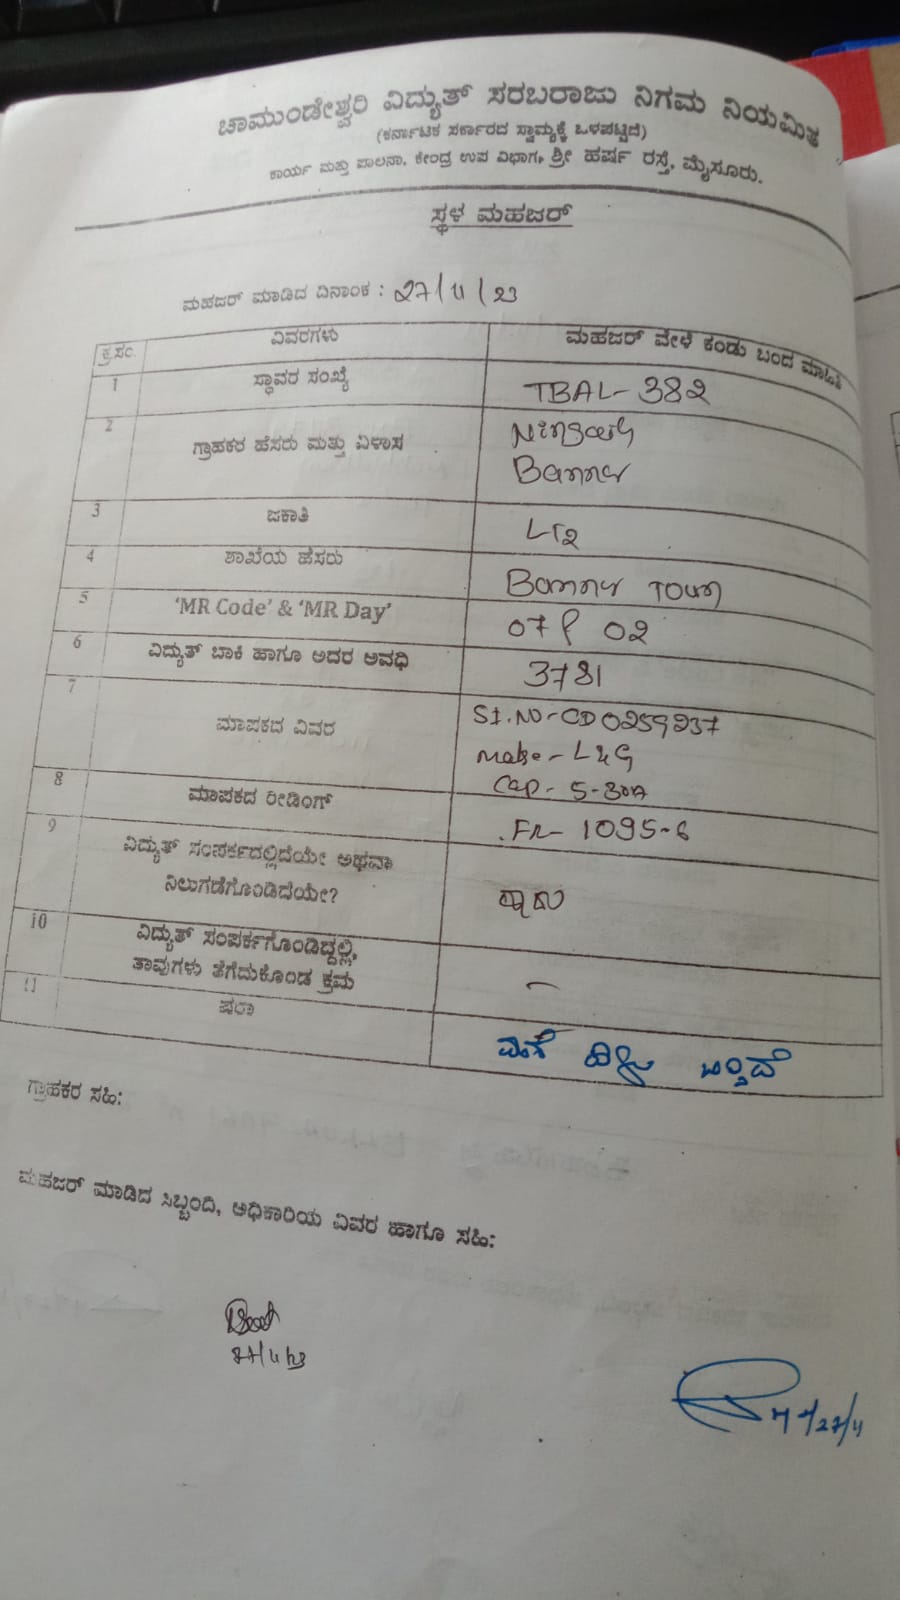 ಚಾಮುಂಡೇಶ್ವರಿ ವಿದ್ಯುತ್ ಸರಬರಾಜು ನಿಗಮ ನಿಯಮಿತ
(ಕರ್ನಾಟಕ ಸರ್ಕಾರದ ಸ್ವಾಮ್ಯಕ್ಕೆ ಒಳಪಟ್ಟಿದೆ)
ಕಾರ್ಯ ಮತ್ತು ಪಾಲನಾ, ಕೇಂದ್ರ ಉಪ ವಿಭಾಗ, ಶ್ರೀ ಹರ್ಷ ರಸ್ತೆ, ಮೈಸೂರು.
ಸ್ಥಳ ಮಹಜರ್
ಮಹಜರ್ ಮಾಡಿದ ದಿನಾಂಕ : 27/11/23
ಕ್ರ.ಸಂ. ವಿವರಗಳು ಮಹಜರ್ ವೇಳೆ ಕಂಡು ಬಂದ ಮಾಹಿತಿ
1 ಸ್ಥಾವರ ಸಂಖ್ಯೆ TBAL-382
2 ಗ್ರಾಹಕರ ಹೆಸರು ಮತ್ತು ವಿಳಾಸ
Bannur
3 ಜಕಾತಿ LT2
4 ಶಾಖೆಯ ಹೆಸರು Bannur Town
5 'MR Code' & 'MR Day' 02
6 ವಿದ್ಯುತ್ ಬಾಕಿ ಹಾಗೂ ಅದರ ಅವಧಿ 3781
7 ಮಾಪಕದ ವಿವರ Sl.No-CD0259237
Make-L&G
Cap-5-30A
8 ಮಾಪಕದ ರೀಡಿಂಗ್ FR-1095-6
9 ವಿದ್ಯುತ್ ಸಂಪರ್ಕದಲ್ಲಿದೆಯೇ ಅಥವಾ
ನಿಲುಗಡೆಗೊಂಡಿದೆಯೇ?
10 ವಿದ್ಯುತ್ ಸಂಪರ್ಕಗೊಂಡಿದ್ದಲ್ಲಿ,
ತಾವುಗಳು ತೆಗೆದುಕೊಂಡ ಕ್ರಮ -
11 ಷರಾ
ಗ್ರಾಹಕರ ಸಹಿ:
ಮಹಜರ್ ಮಾಡಿದ ಸಿಬ್ಬಂದಿ, ಅಧಿಕಾರಿಯ ವಿವರ ಹಾಗೂ ಸಹಿ:
27/11/23
27/11